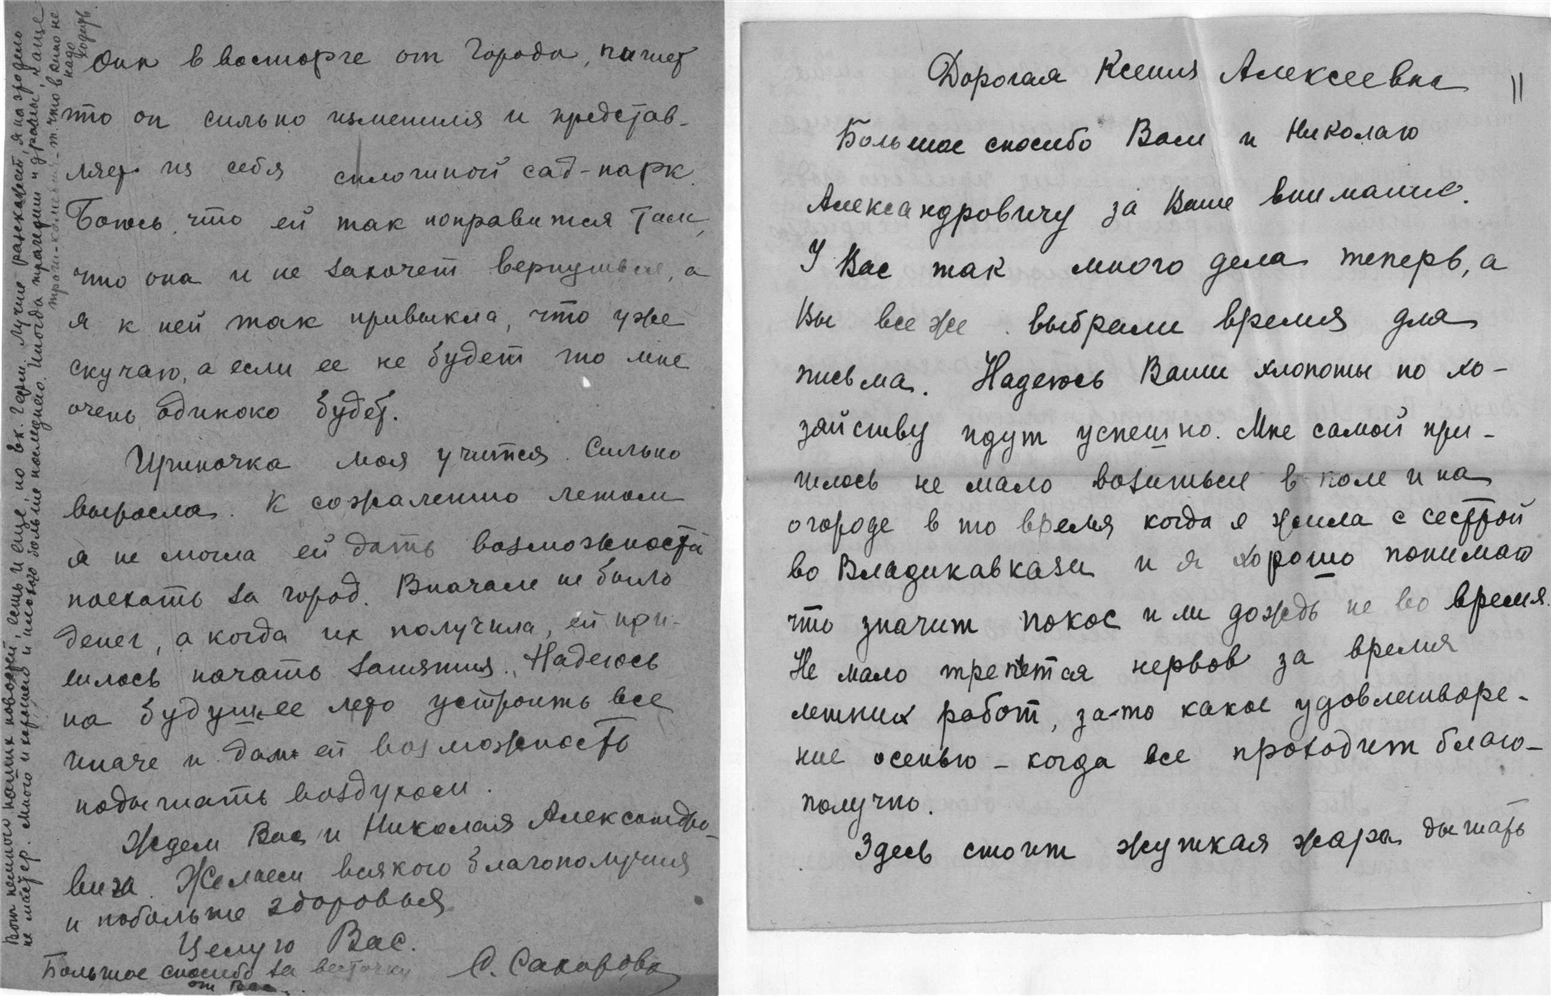 Она в восторге от города, пишет
что он сильно изменился и представ-
ляет из себя сплошной сад-парк.
Боюсь, что ей так понравится там,
что она и не захочет вернуться, а
я к ней так привыкла, что уже
скучаю, а если ее не будет то мне
очень одиноко будет.
Ириночка моя учится. Сильно
выросла. К сожалению летом
я не могла ей дать возможности
поехать за город. Вначале не было
денег, а когда их получила, ей при-
шлось начать занятия. Надеюсь
на будущее лето устроить все
иначе и дам ей возможность
подышать воздухом.
Ждем Вас и Николая Александро-
вича. Желаем всякого благополучия
и побольше здоровья
Целую Вас.
С. Сахарова
Большое спасибо за весточку
от Вас.
Вот немного наших новостей, есть и еще, но в к. Гари. лучше расскажет, я на это дело
не мастер. Много и хорошего и много больше последнего. Иногда трагедии и драмы, чаще
траги-комедии т. что в кино не
надо
ходить.
Дорогая Ксения Алексеевна
11
Большое спосибо Вам и Николаю
Александровичу за Ваше внимание.
У Вас так много дела теперь, а
Вы все же выбрали время для
письма. Надеюсь Ваши хлопоты по хо-
зайству идут успешно. Мне самой при-
шлось не мало возиться в поле и на
огороде в то время когда я жила с сестрой
во Владикавказе и я хорошо понимаю
что значит покос или дождь не во время.
Не мало треплется нервов за время
летних работ, за-то какое удовлетворе-
ние осенью – когда все проходит благо-
получно.
Здесь стоит жуткая жара дышать